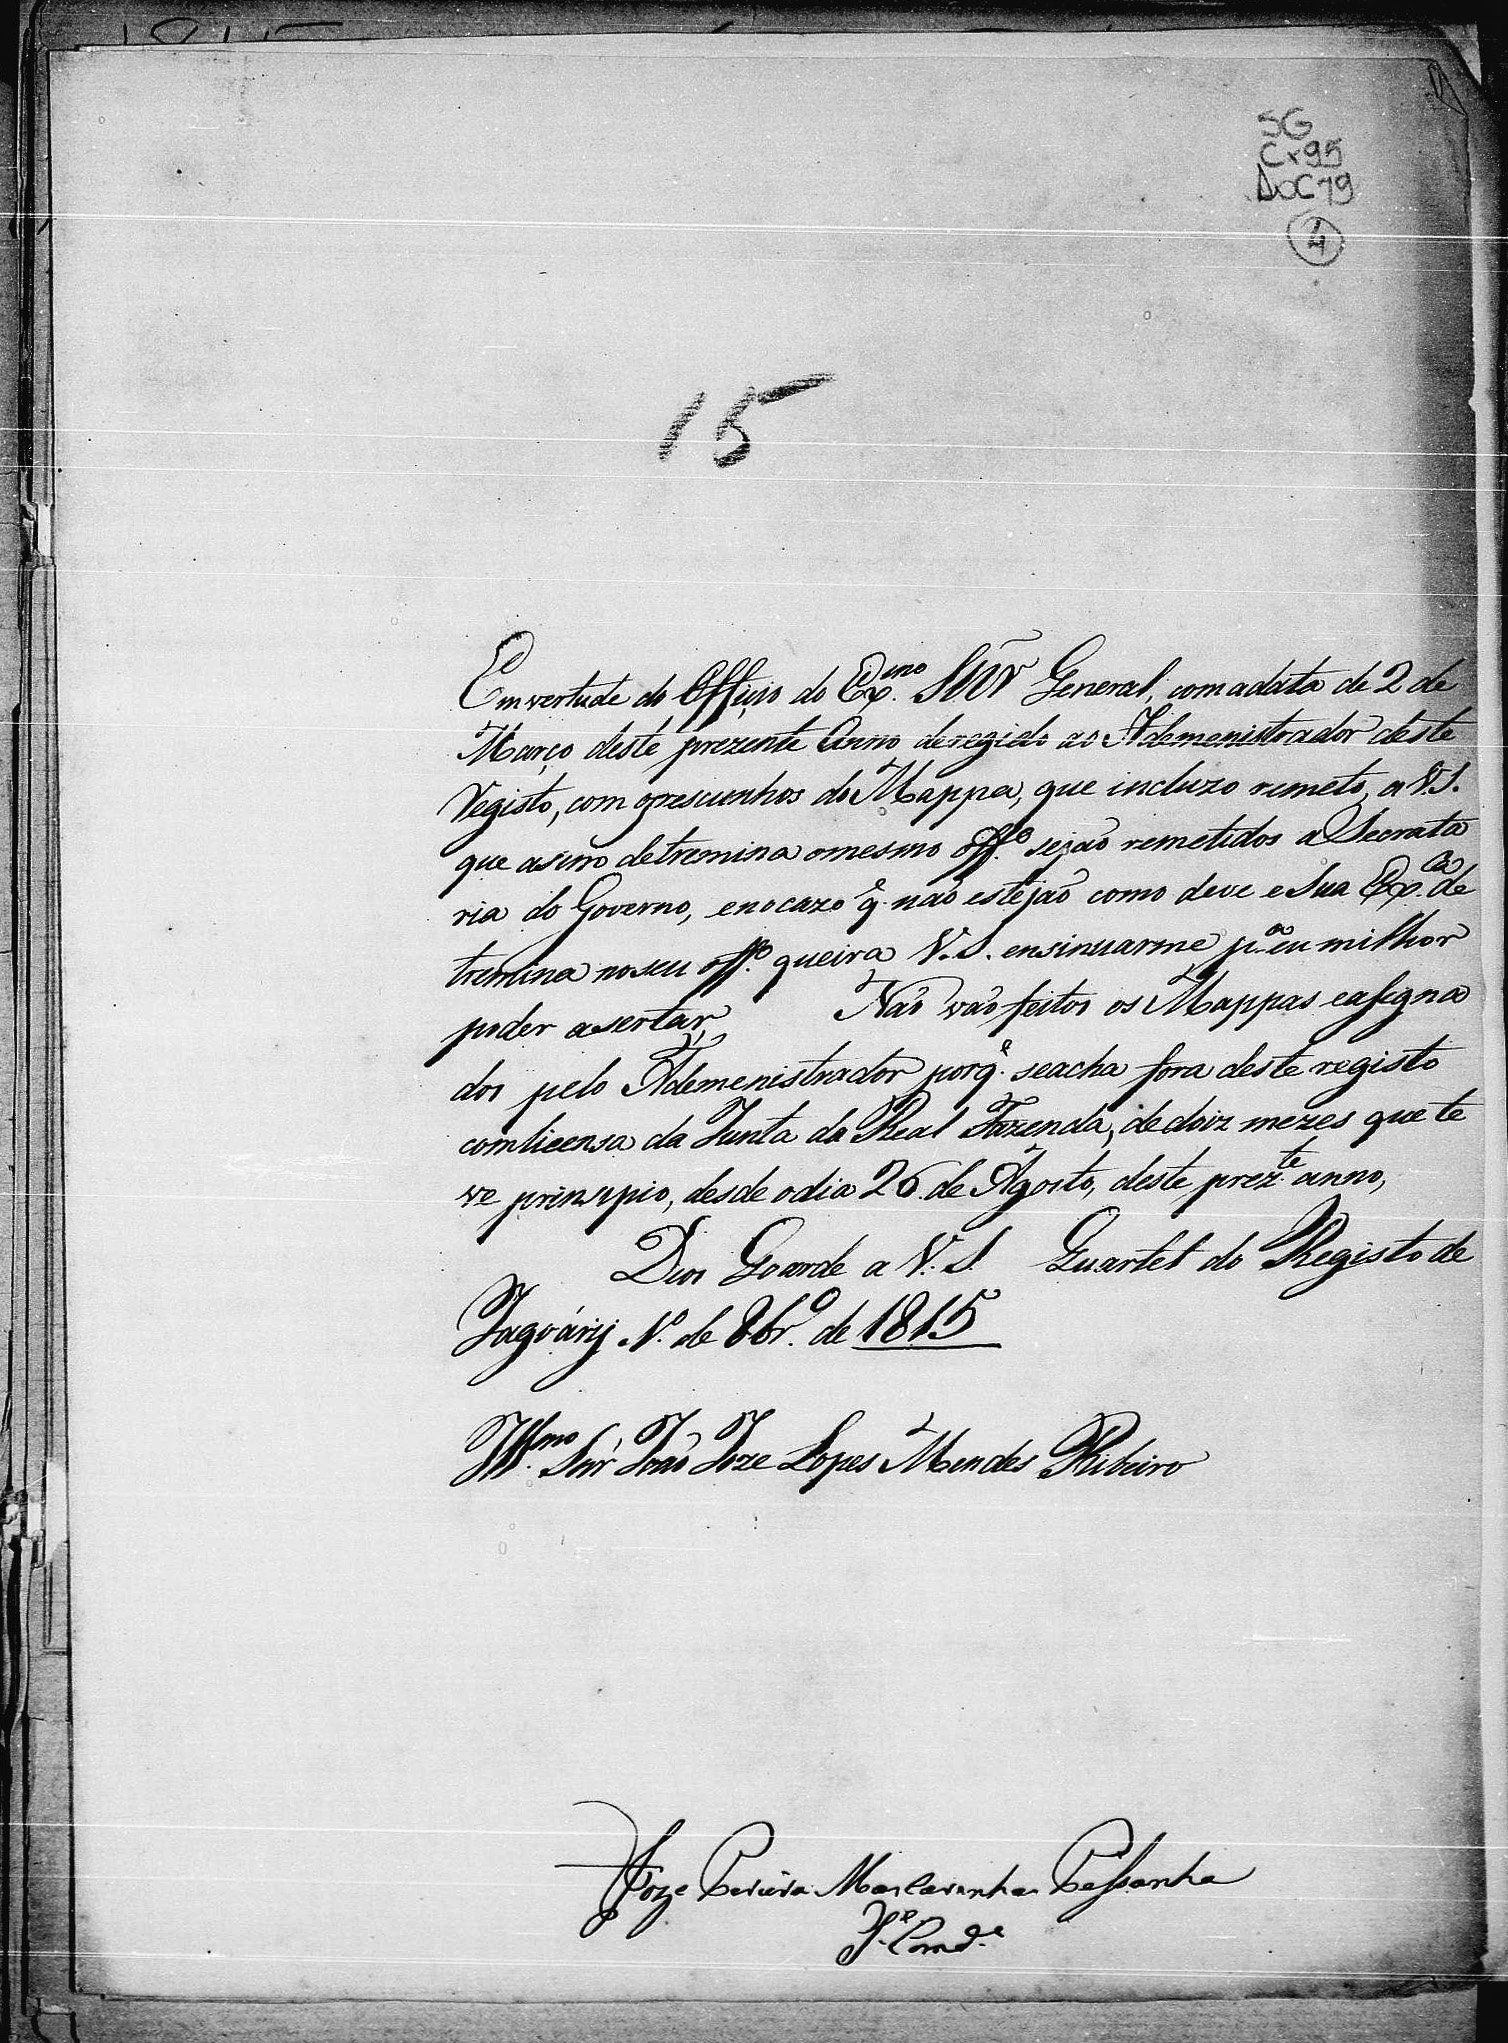 SG
Cx95
DOC79
4
15
Em vertude do Offiçio do Ex.mo Snr̃ General, com a data de 2 de
Março deste prezente Anno deregido ao Ademenistrador deste
Registo, com os rescunhos do Mappa, que incluzo remeto, a V.S.
que asim detremina o mesmo off.º sejaõ remetidos a Secreta
ria do Governo, e no cazo q̃. naõ estejaõ como deve e Sua Ex.ca de
tremina no seu off.º queira V.S. ensinuarme p.ª eu milhor
poder asertar, Naõ vaõ feitos os Mappas e asigna
dos pelo Ademenistrador porq̃. se acha fora deste registo
com licensa da Junta da Real Fazenda, de doiz mezes que te
ve prinsipio, desde o dia 26 de Agosto, deste prez.te anno,
Dios Goarde a V.S. Quartel do Registo de
Jagoáry N.º de 8br.º de 1815
Ill.mo Snr̃ Joaõ Joze Lopes Mendes Ribeiro
Joze Pereira Mascarenhas Pessanha